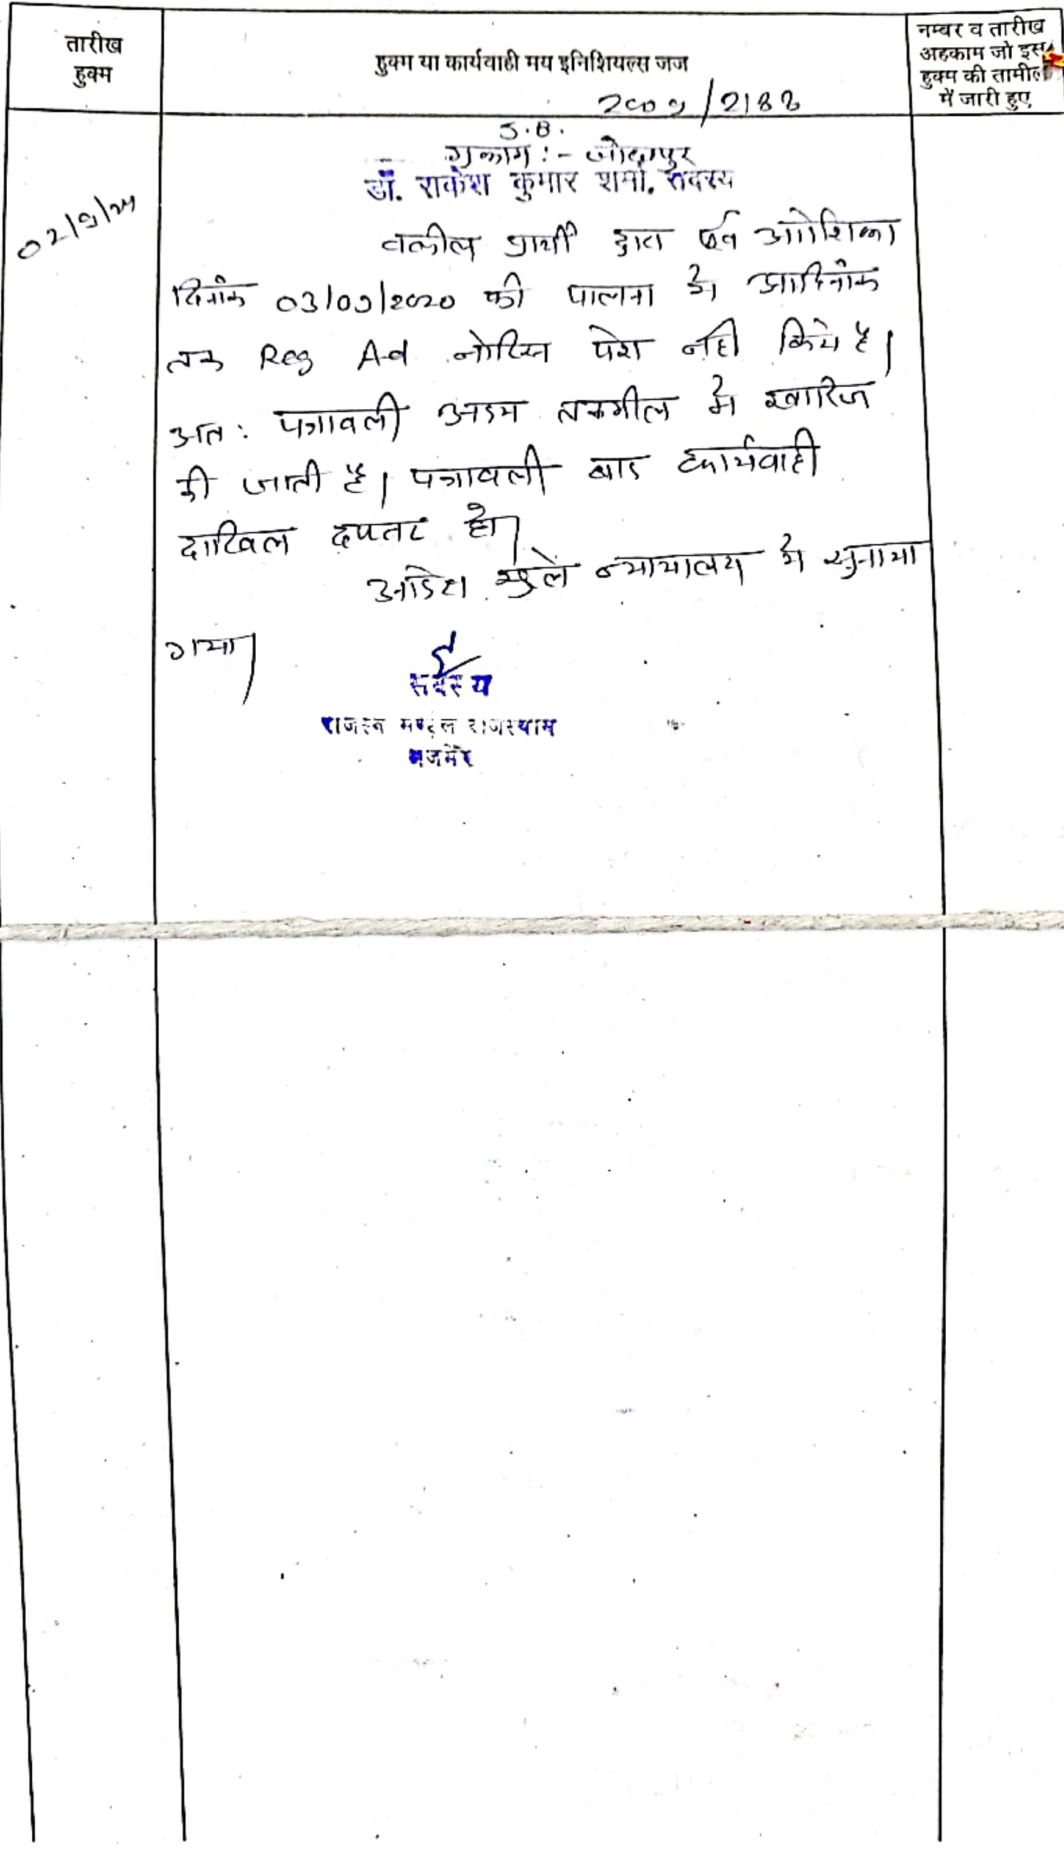 तारीख
हुक्म
हुक्म या कार्यवाही मय इनिशियल्स जज
नम्बर व तारीख
अहकाम जो इस
हुक्म की तामील
में जारी हुए
/2188
S.B.
मुकाम :- जोधपुर
डॉ. राकेश कुमार शर्मा, सदस्य
02/9/24
वकील प्रार्थी द्वारा पूर्व आदेशिका
दिनांक 03/09/2020 की पालना में आदिनांक
तक Reg A-d नोटिस पेश नहीं किये है।
अतः पत्रावली अदम तकमील में खारिज
की जाती है। पत्रावली बाद कार्यवाही
दाखिल दफ्तर हो।
आदेश खुले न्यायालय में सुनाया
गया।
सदस्य
राजस्व मण्डल राजस्थान
अजमेर